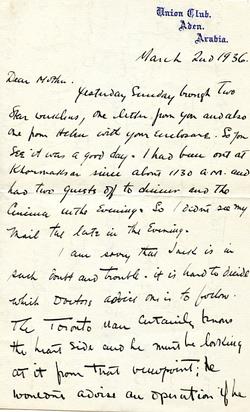 Union Club.
Aden.
Arabia.
March 2nd 1936.
Dear Mother.
Yesterday Sunday brought Two
Star wireless, one letter from you and also
one from Helen with your enclosure. So you
see it was a good day. I had been out at
Khormaksar since about 1130 a.m. and
had two guests of to dinner and the
Cinema in the Evening. So I didn't see my
Mail till late in the Evening.
I am sorry that is in
such doubt and trouble. it is hard to decide
which Doctors advice one is to follow.
The Toronto man certainly knows
the heart side and he must be looking
at it from that viewpoint; he
wouldn't advise an operation if he